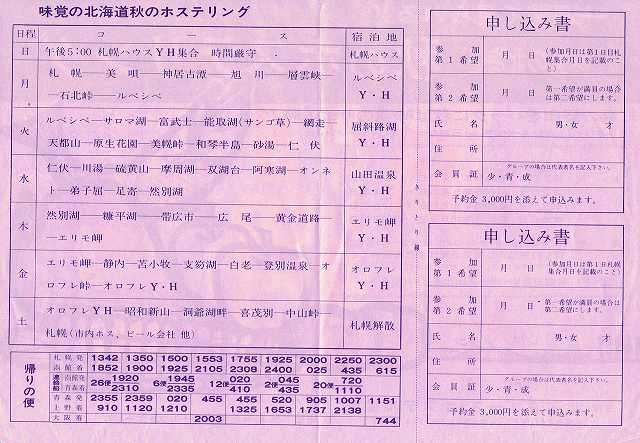 味覚の北海道秋のホステリング
日程 コース 宿泊地
日 午後5:00 札幌ハウスYH集合 時間厳守 札幌ハウス
月 札幌――美唄――神居古潭――旭川――層雲峡―
―石北峠――ルベシベ
ルベシベ
Y・H
火 ルベシベ―サロマ湖―富武士―能取湖(サンゴ草)―網走―
天都山―原生花園―美幌峠―和琴半島―砂湯―仁伏
屈斜路湖
Y・H
水 仁伏―川湯―硫黄山―摩周湖―双湖台―阿寒湖―オンネ
ト―弟子屈―足寄―然別湖
山田温泉
Y・H
木 然別湖――糠平湖――帯広市――広尾――黄金道路―
―エリモ岬
エリモ岬
Y・H
金 エリモ岬―静内―苫小牧―支笏湖―白老―登別温泉―オ
ロフレ峠―オロフレY・H
オロフレ
Y・H
土 オロフレYH―昭和新山―洞爺湖畔―喜茂別―中山峠―
札幌(市内ホス、ビール会社 他)
札幌解散
帰りの便
札幌発 1342 1350 1500 1553 1755 1925 2000 2250 2300
函館着 1852 1900 1925 2105 2308 2400 025 435 615
連絡船 函館発 26便 1920 6便 1945 12便 020 2便 045 20便 720
青森着 2310 2335 410 435 1110
青森発 2355 2359 020 455 455 520 905 1007 1151
上野着 910 1120 1210 1325 1653 1737 2138
大阪着 2003 744
きりとり線
申し込み書
参加
第1希望
月 日 (参加月日は第1日目札幌集合月日を記載のこと)
参加
第2希望
月 日 第一希望が満員の場合は第二希望にします。
氏名 男・女 才
住所
グループの場合は代表者名を記入下さい。
会員証 少・青・成
予約金 3,000円を添えて申込みます。
申し込み書
参加
第1希望
月 日 (参加月日は第1日札幌集合月日を記載のこと)
参加
第2希望
月 日 第一希望が満員の場合は第二希望にします。
氏名 男・女 才
住所
グループの場合は代表者名を記入下さい。
会員証 少・青・成
予約金 3,000円を添えて申込みます。